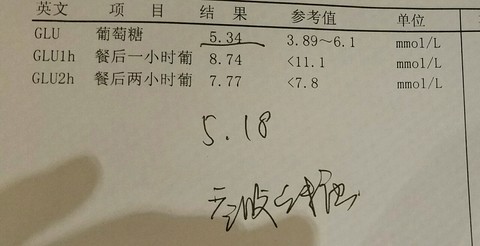 英文 项 目 结 果 参考值 单位
GLU 葡萄糖 5.34 3.89～6.1 mmol/L
GLU1h 餐后一小时葡 8.74 <11.1 mmol/L
GLU2h 餐后两小时葡 7.77 <7.8 mmol/L
5.18